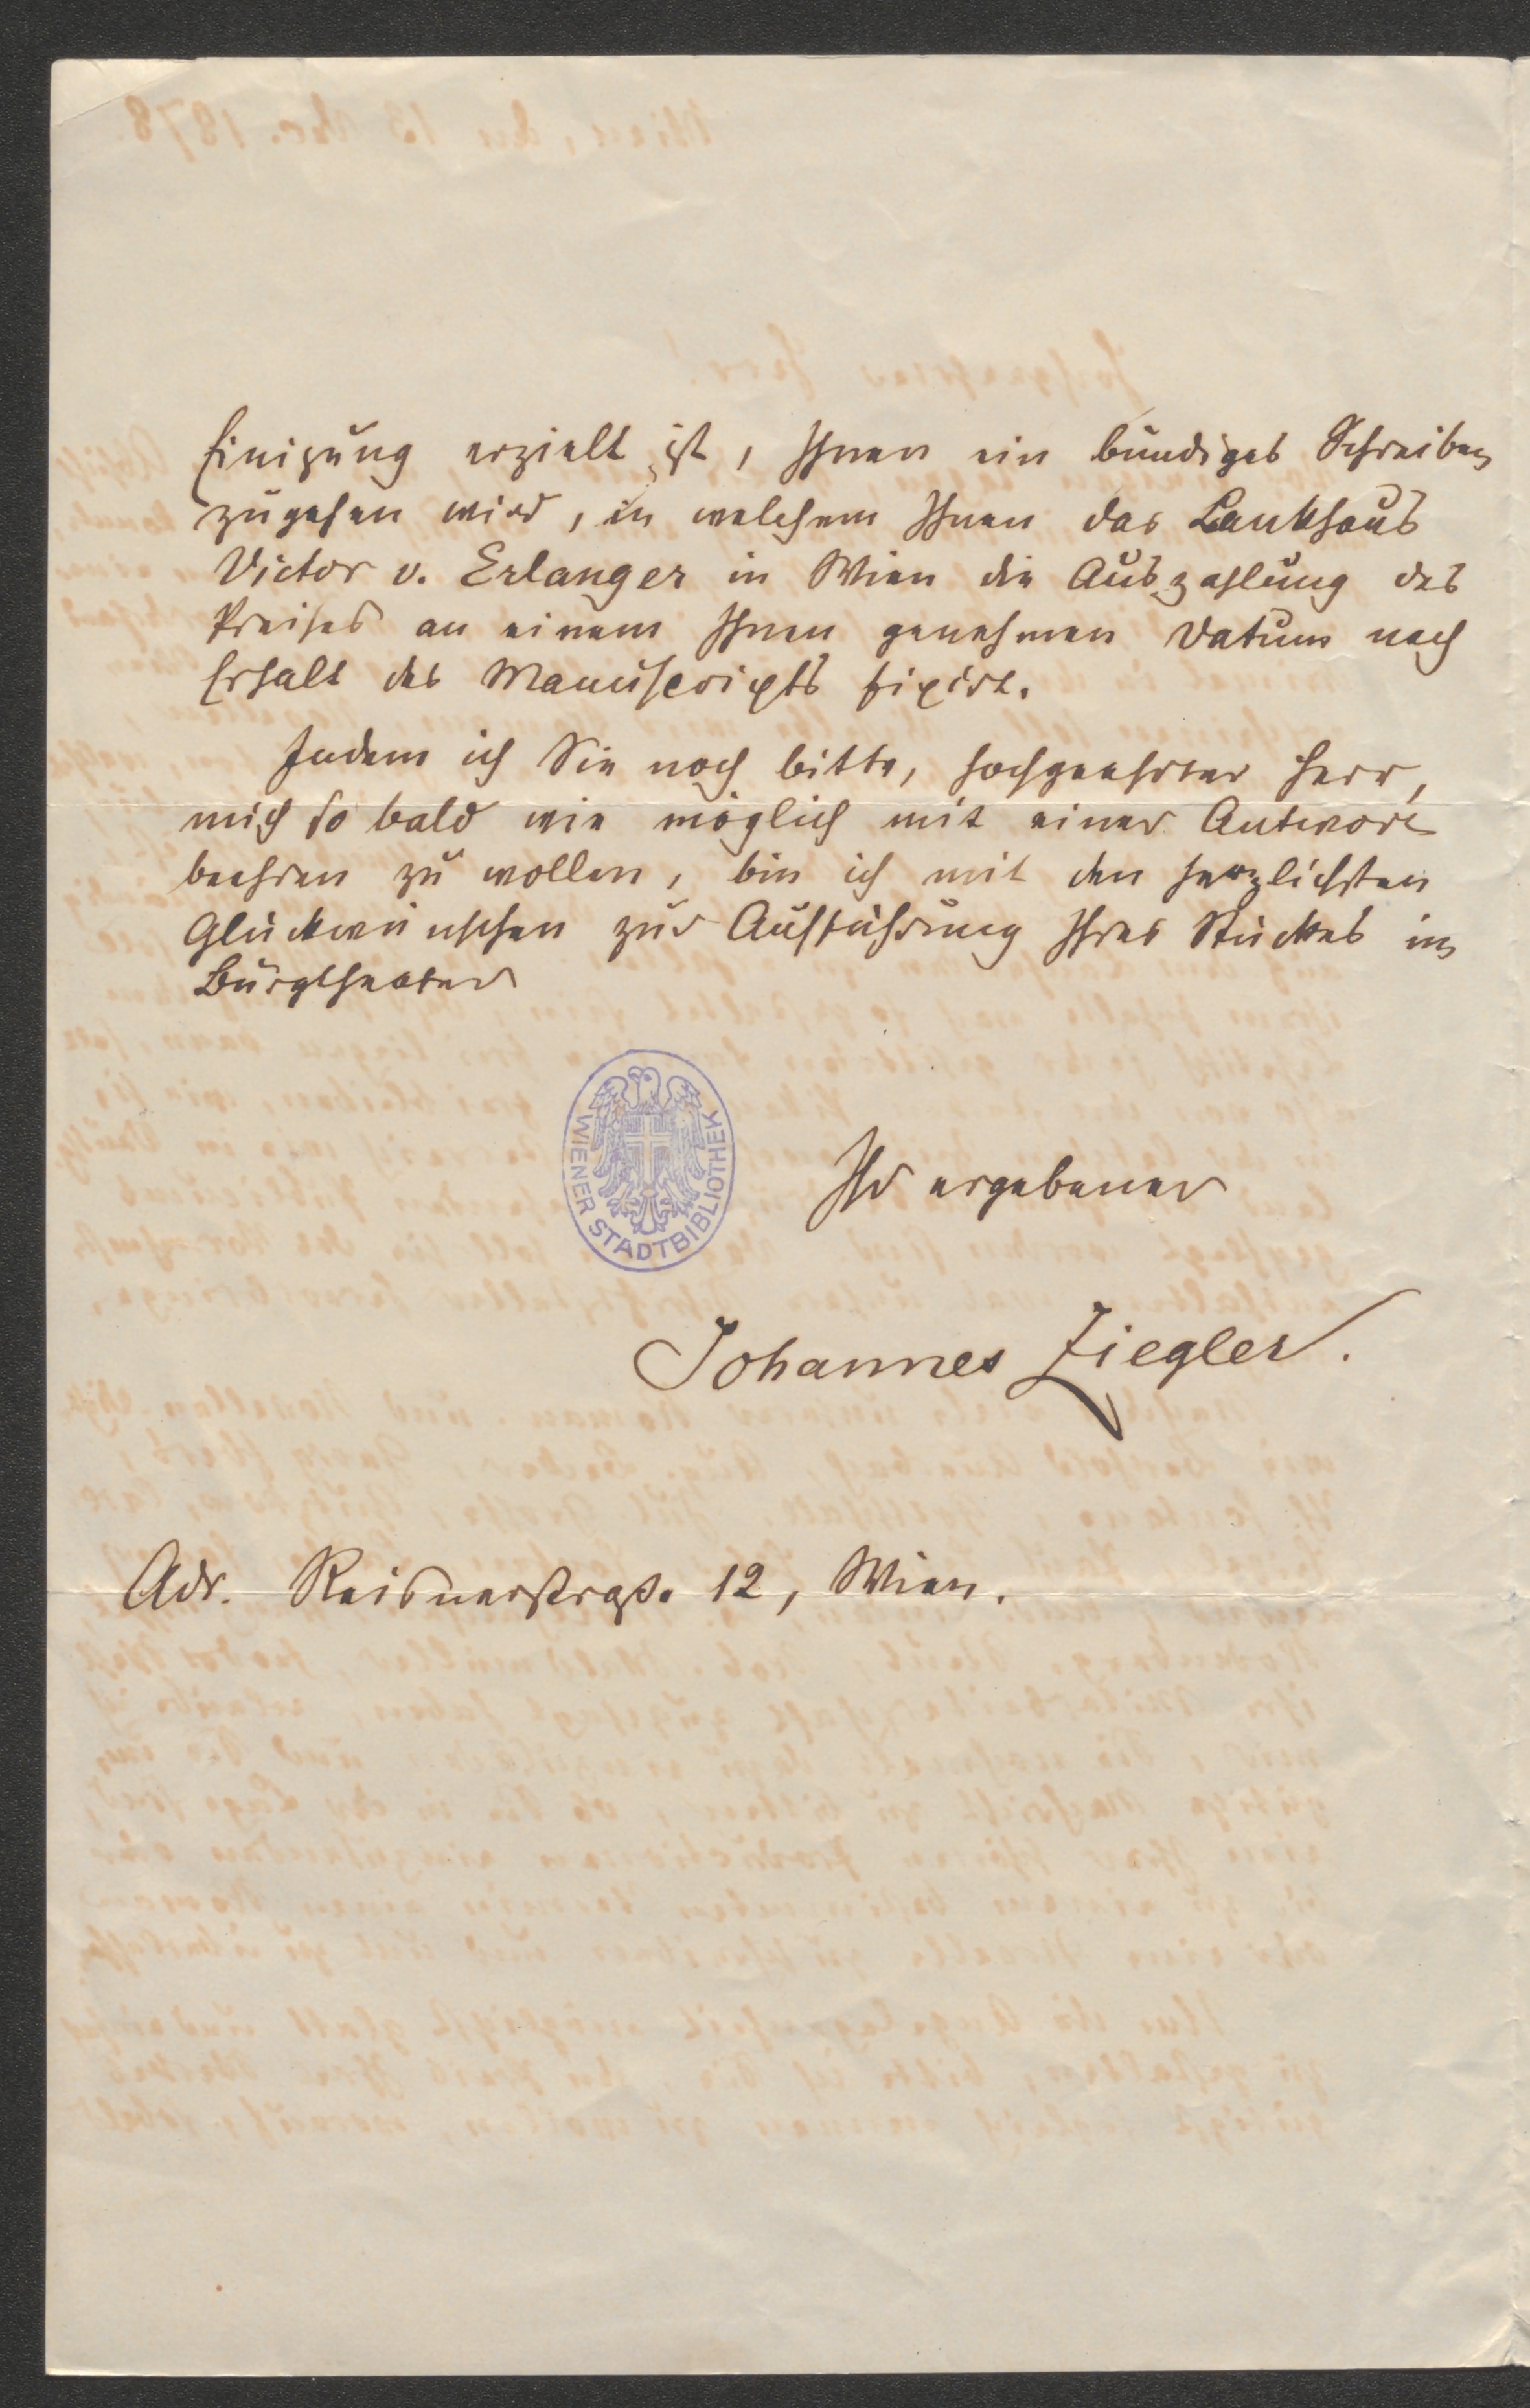 Einigung erzielt ist, Ihnen ein bündiges Schreiben
zugehen wird, in welchem Ihnen das Bankhaus
Victor v. Erlanger in Wien die Auszahlung des
Preises an einem Ihnen genehmen Datum nach
Erhalt des Manuscripts fixirt.
Indem ich Sie noch bitte, hochgeehrter Herr,
mich so bald wie möglich mit einer Antwort
beehren zu wollen, bin ich mit den herzlichsten
Glückwünschen zur Aufführung Ihres Stückes im
Burgtheater
WIENER STADTBIBLIOTHEK
Ihr ergebener
Johannes Ziegler.
Adr. Reisnerstraße 12, Wien.